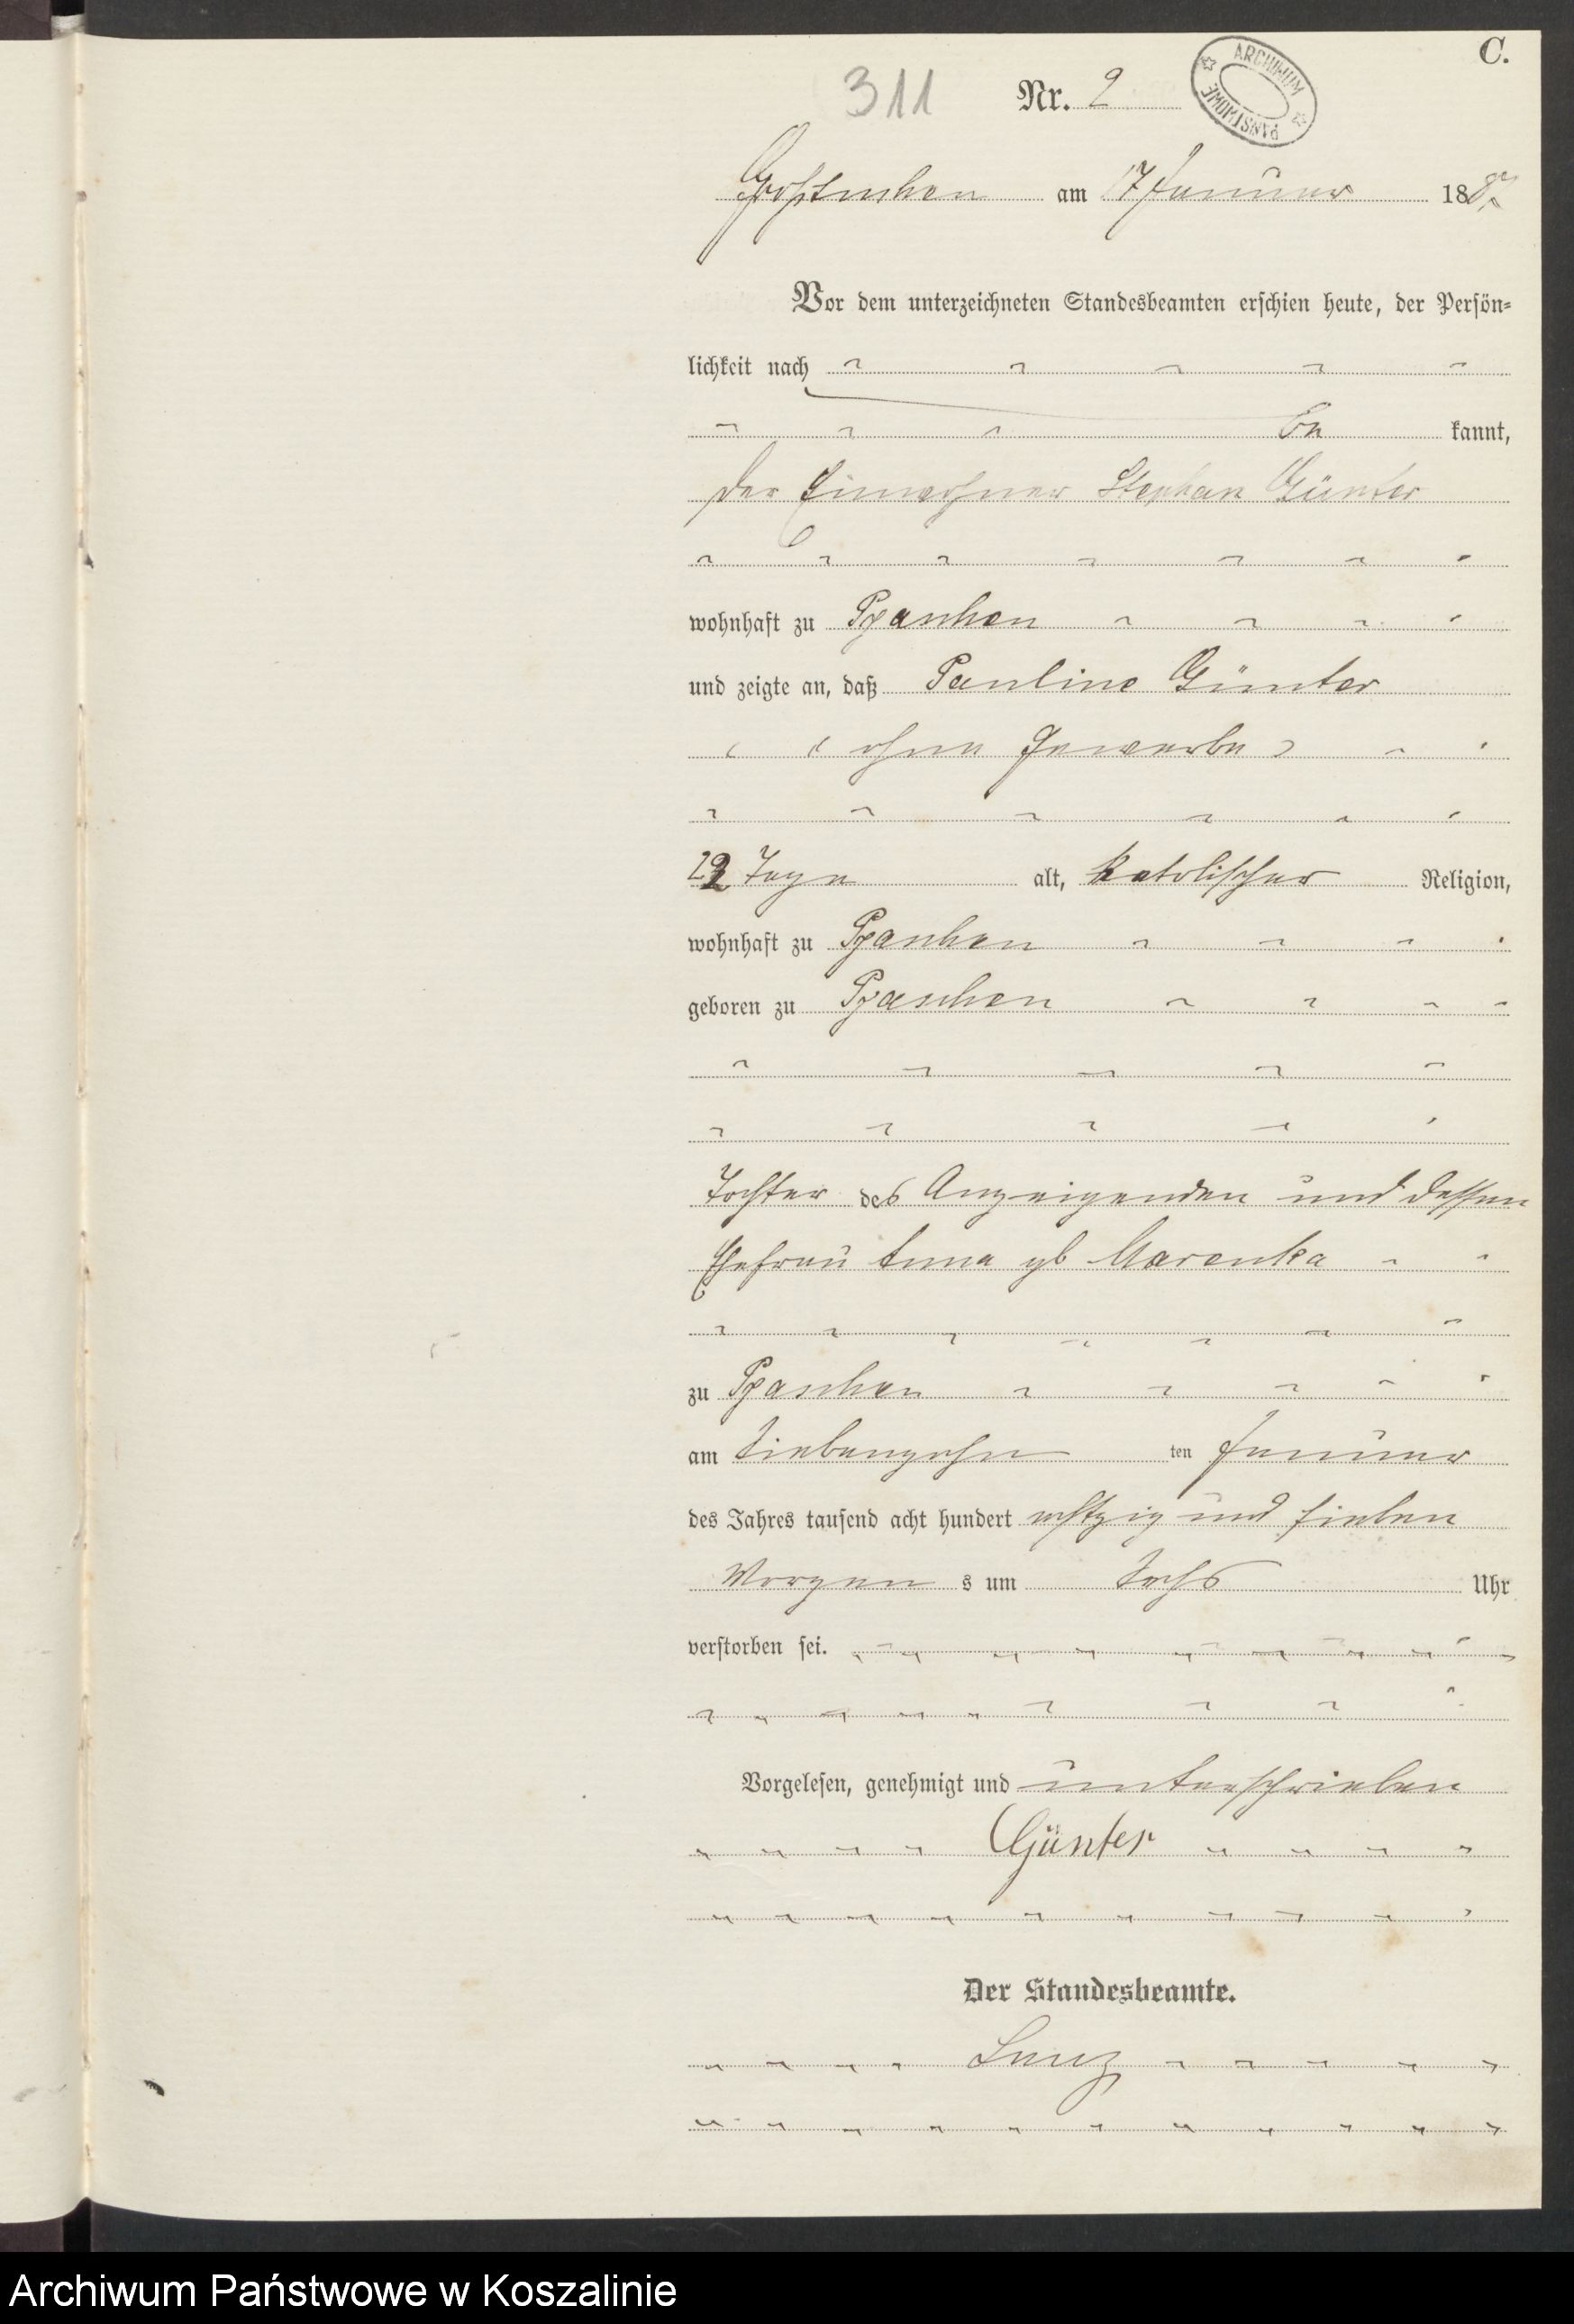 C.
311 Nr. 2
ARCHIWUM PAŃSTWOWE
am 17 Januar 1887
Vor dem unterzeichneten Standesbeamten erschien heute, der Persön-
lichkeit nach
be kannt,
der Einwohner Stephan Günter
wohnhaft zu
und zeigte an, daß Pauline Günter
ohne Gewerbe
Tage alt, katolischer Religion,
wohnhaft zu
geboren zu
Tochter des Anzeigenden und dessen
Ehefrau Anna gb Marenka
zu
am siebenzehn ten Januar
des Jahres tausend acht hundert achtzig und sieben
Morgen s um sechs Uhr
verstorben sei.
Vorgelesen, genehmigt und unterschrieben
Günter
Der Standesbeamte.
Archiwum Państwowe w Koszalinie